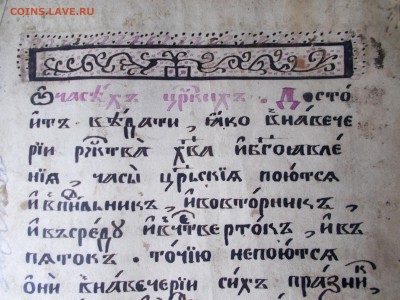 COINS.LAVE.RU
Ѽ часѣхъ црⷭ҇кихъ . Досто
и́тъ вѣдати, ꙗ҆ко в̾навече
рїи ржⷭ҇тва хв҃а и҆бг҃оꙗ҆вле
нїѧ, часы̀ црⷭ҇ьскїѧ поютсѧ
и҆в̾пн҃льникъ, и҆вовторникъ,
и҆въсредꙋ и҆в̾че́твертокъ, и҆въ
пѧтокъ . то́чїю непоютсѧ
ѻ҆нѝ в̾навечерїи сихъ празни́к